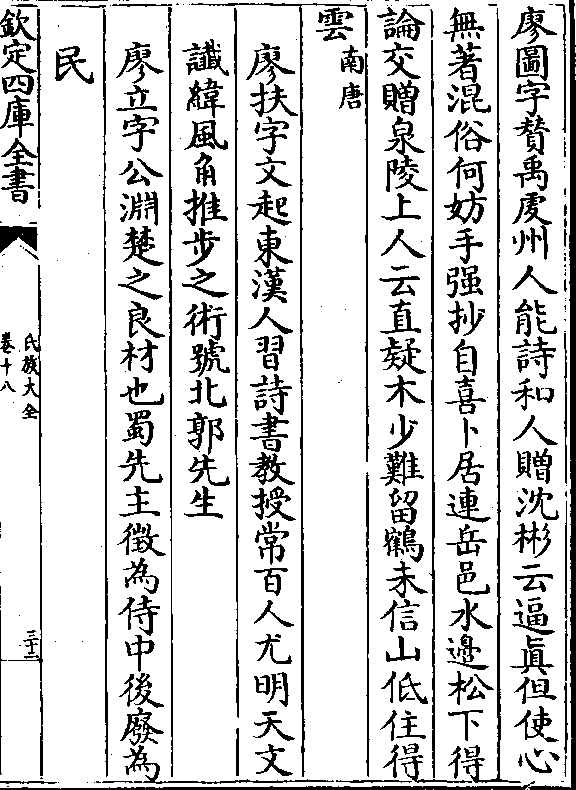 廖圖字賛禹虔州人能詩和人贈沈彬云逼眞但使心
無著混俗何妨手强抄自喜卜居連岳邑水邉松下得
論交贈泉陵上人云直疑木少難留鶴未信山低住得
雲南唐
廖扶字文起東漢人習詩書教授常百人尤明天文
讖緯風角推步之術號北郭先生
廖立字公淵楚之良材也蜀先主徵為侍中後廢為
民
欽定四庫全書
氏族大全
卷十八
三十二